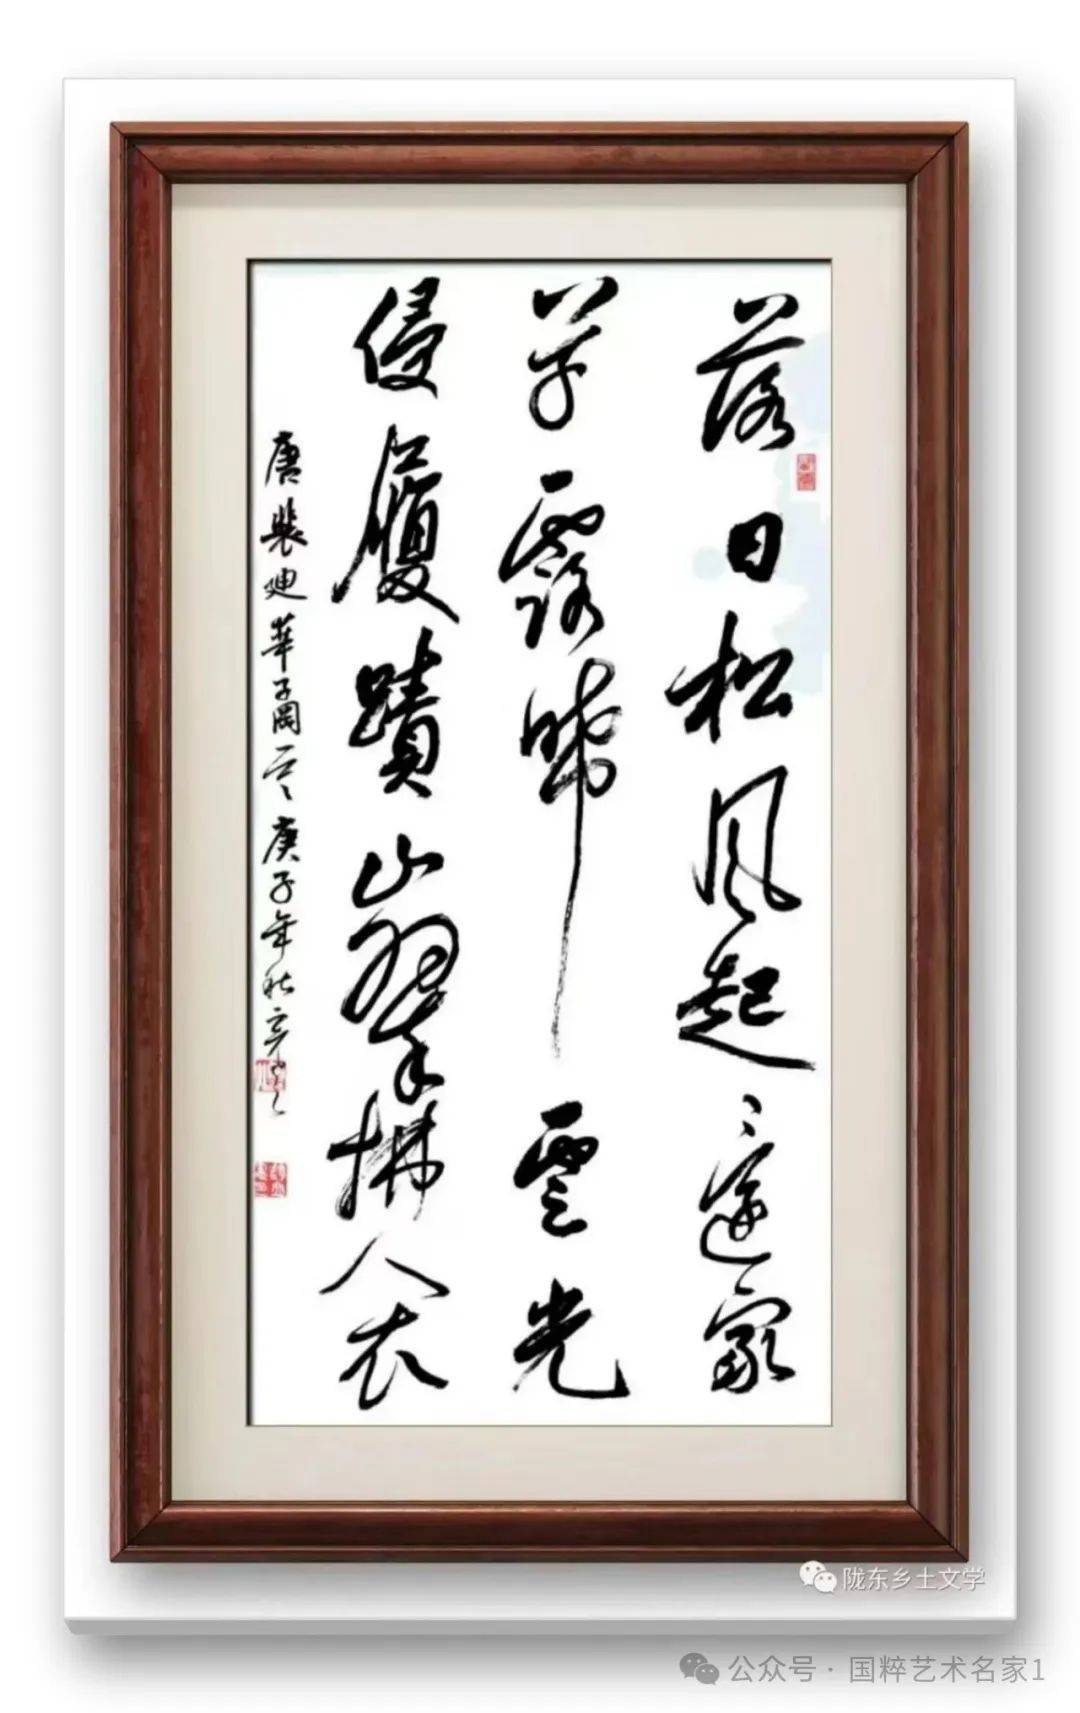 落日松風起還家
草露晞雲光
侵履蹟山翠拂人衣
唐裴迪華子岡一首庚子年秋
陇东乡土文学
公众号·国粹艺术名家1